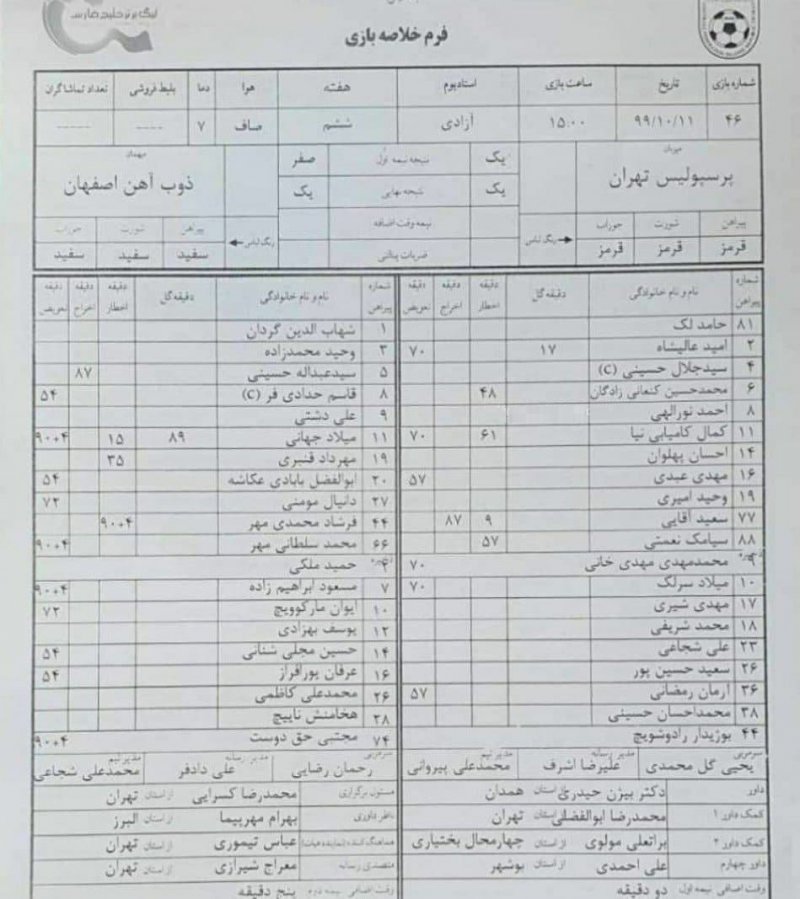 لیگ برتر خلیج فارس
فرم خلاصه بازی
شماره بازی تاریخ ساعت بازی استادیوم هفته هوا دما بلیط فروشی تعداد تماشاگران
۴۶ ۹۹/۱۰/۱۱ ۱۵:۰۰ آزادی ششم صاف ۷ ---- -----
میزبان یک نتیجه نیمه اول صفر مهمان
پرسپولیس تهران یک نتیجه نهایی یک ذوب آهن اصفهان
پیراهن شورت جوراب رنگ لباس نیمه وقت اضافه رنگ لباس پیراهن شورت جوراب
قرمز قرمز قرمز ضربات پنالتی سفید سفید سفید
شماره پیراهن نام و نام خانوادگی دقیقه گل دقیقه اخطار دقیقه اخراج دقیقه تعویض شماره پیراهن نام و نام خانوادگی دقیقه گل دقیقه اخطار دقیقه اخراج دقیقه تعویض
۸۱ حامد لک ۱ شهاب الدین گردان
۲ امید عالیشاه ۱۷ ۷۰ ۳ وحید محمدزاده
۴ سیدجلال حسینی (C) ۵ سیدعبداله حسینی ۸۷
۶ محمدحسین کنعانی زادگان ۴۸ ۸ قاسم حدادی فر (C) ۵۴
۸ احمد نورالهی ۹ علی دشتی
۱۱ کمال کامیابی نیا ۶۱ ۷۰ ۱۱ میلاد جهانی ۸۹ ۱۵ ۹۰+۴
۱۴ احسان پهلوان ۱۹ مهرداد قنبری ۳۵
۱۶ مهدی عبدی ۵۷ ۲۰ ابوالفضل بابادی عکاشه ۵۴
۱۹ وحید امیری ۲۷ دانیال مومنی ۷۲
۷۷ سعید آقایی ۹ ۸۷ ۴۴ فرشاد محمدی مهر ۹۰+۴
۸۸ سیامک نعمتی ۵۷ ۶۶ محمد سلطانی مهر ۹۰+۴
۹ محمدمهدی مهدی خانی ۷۰ حمید ملکی
۱۰ میلاد سرلک ۷۰ ۷ مسعود ابراهیم زاده ۹۰+۴
۱۷ مهدی شیری ۱۰ ایوان مارکوویچ ۷۲
۱۸ محمد شریفی ۱۲ یوسف بهزادی
۲۳ علی شجاعی ۱۴ حسین مجلی شنانی ۵۴
۲۶ سعید حسین پور ۱۶ عرفان پورافراز ۵۴
۳۶ آرمان رمضانی ۵۷ ۲۶ محمدعلی کاظمی
۳۸ محمداحسان حسینی ۲۸ هخامنش نایبیچ
۴۴ بوژیدار رادوشویچ ۷۴ مجتبی حق دوست ۹۰+۴
سرمربی یحیی گل محمدی مدیر رسانه علیرضا اشرف مدیر تیم محمدعلی پیروانی سرمربی رحمان رضایی مدیر رسانه علی دادفر مدیر تیم محمدعلی شجاعی
داور دکتر بیژن حیدری از استان همدان مسئول برگزاری محمدرضا کسرایی از استان تهران
کمک داور ۱ محمدرضا ابوالفضلی از استان تهران ناظر داوری بهرام مهرپیما از استان البرز
کمک داور ۲ براتعلی مولوی از استان چهارمحال بختیاری هماهنگ کننده (نماینده هیات) عباس تیموری از استان تهران
داور چهارم علی احمدی از استان بوشهر متصدی رسانه معراج شیرازی از استان تهران
وقت اضافی نیمه اول دو دقیقه وقت اضافی نیمه دوم پنج دقیقه